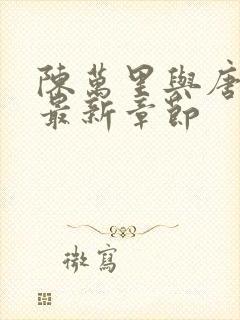 陳萬里與唐
最新章節
微寫